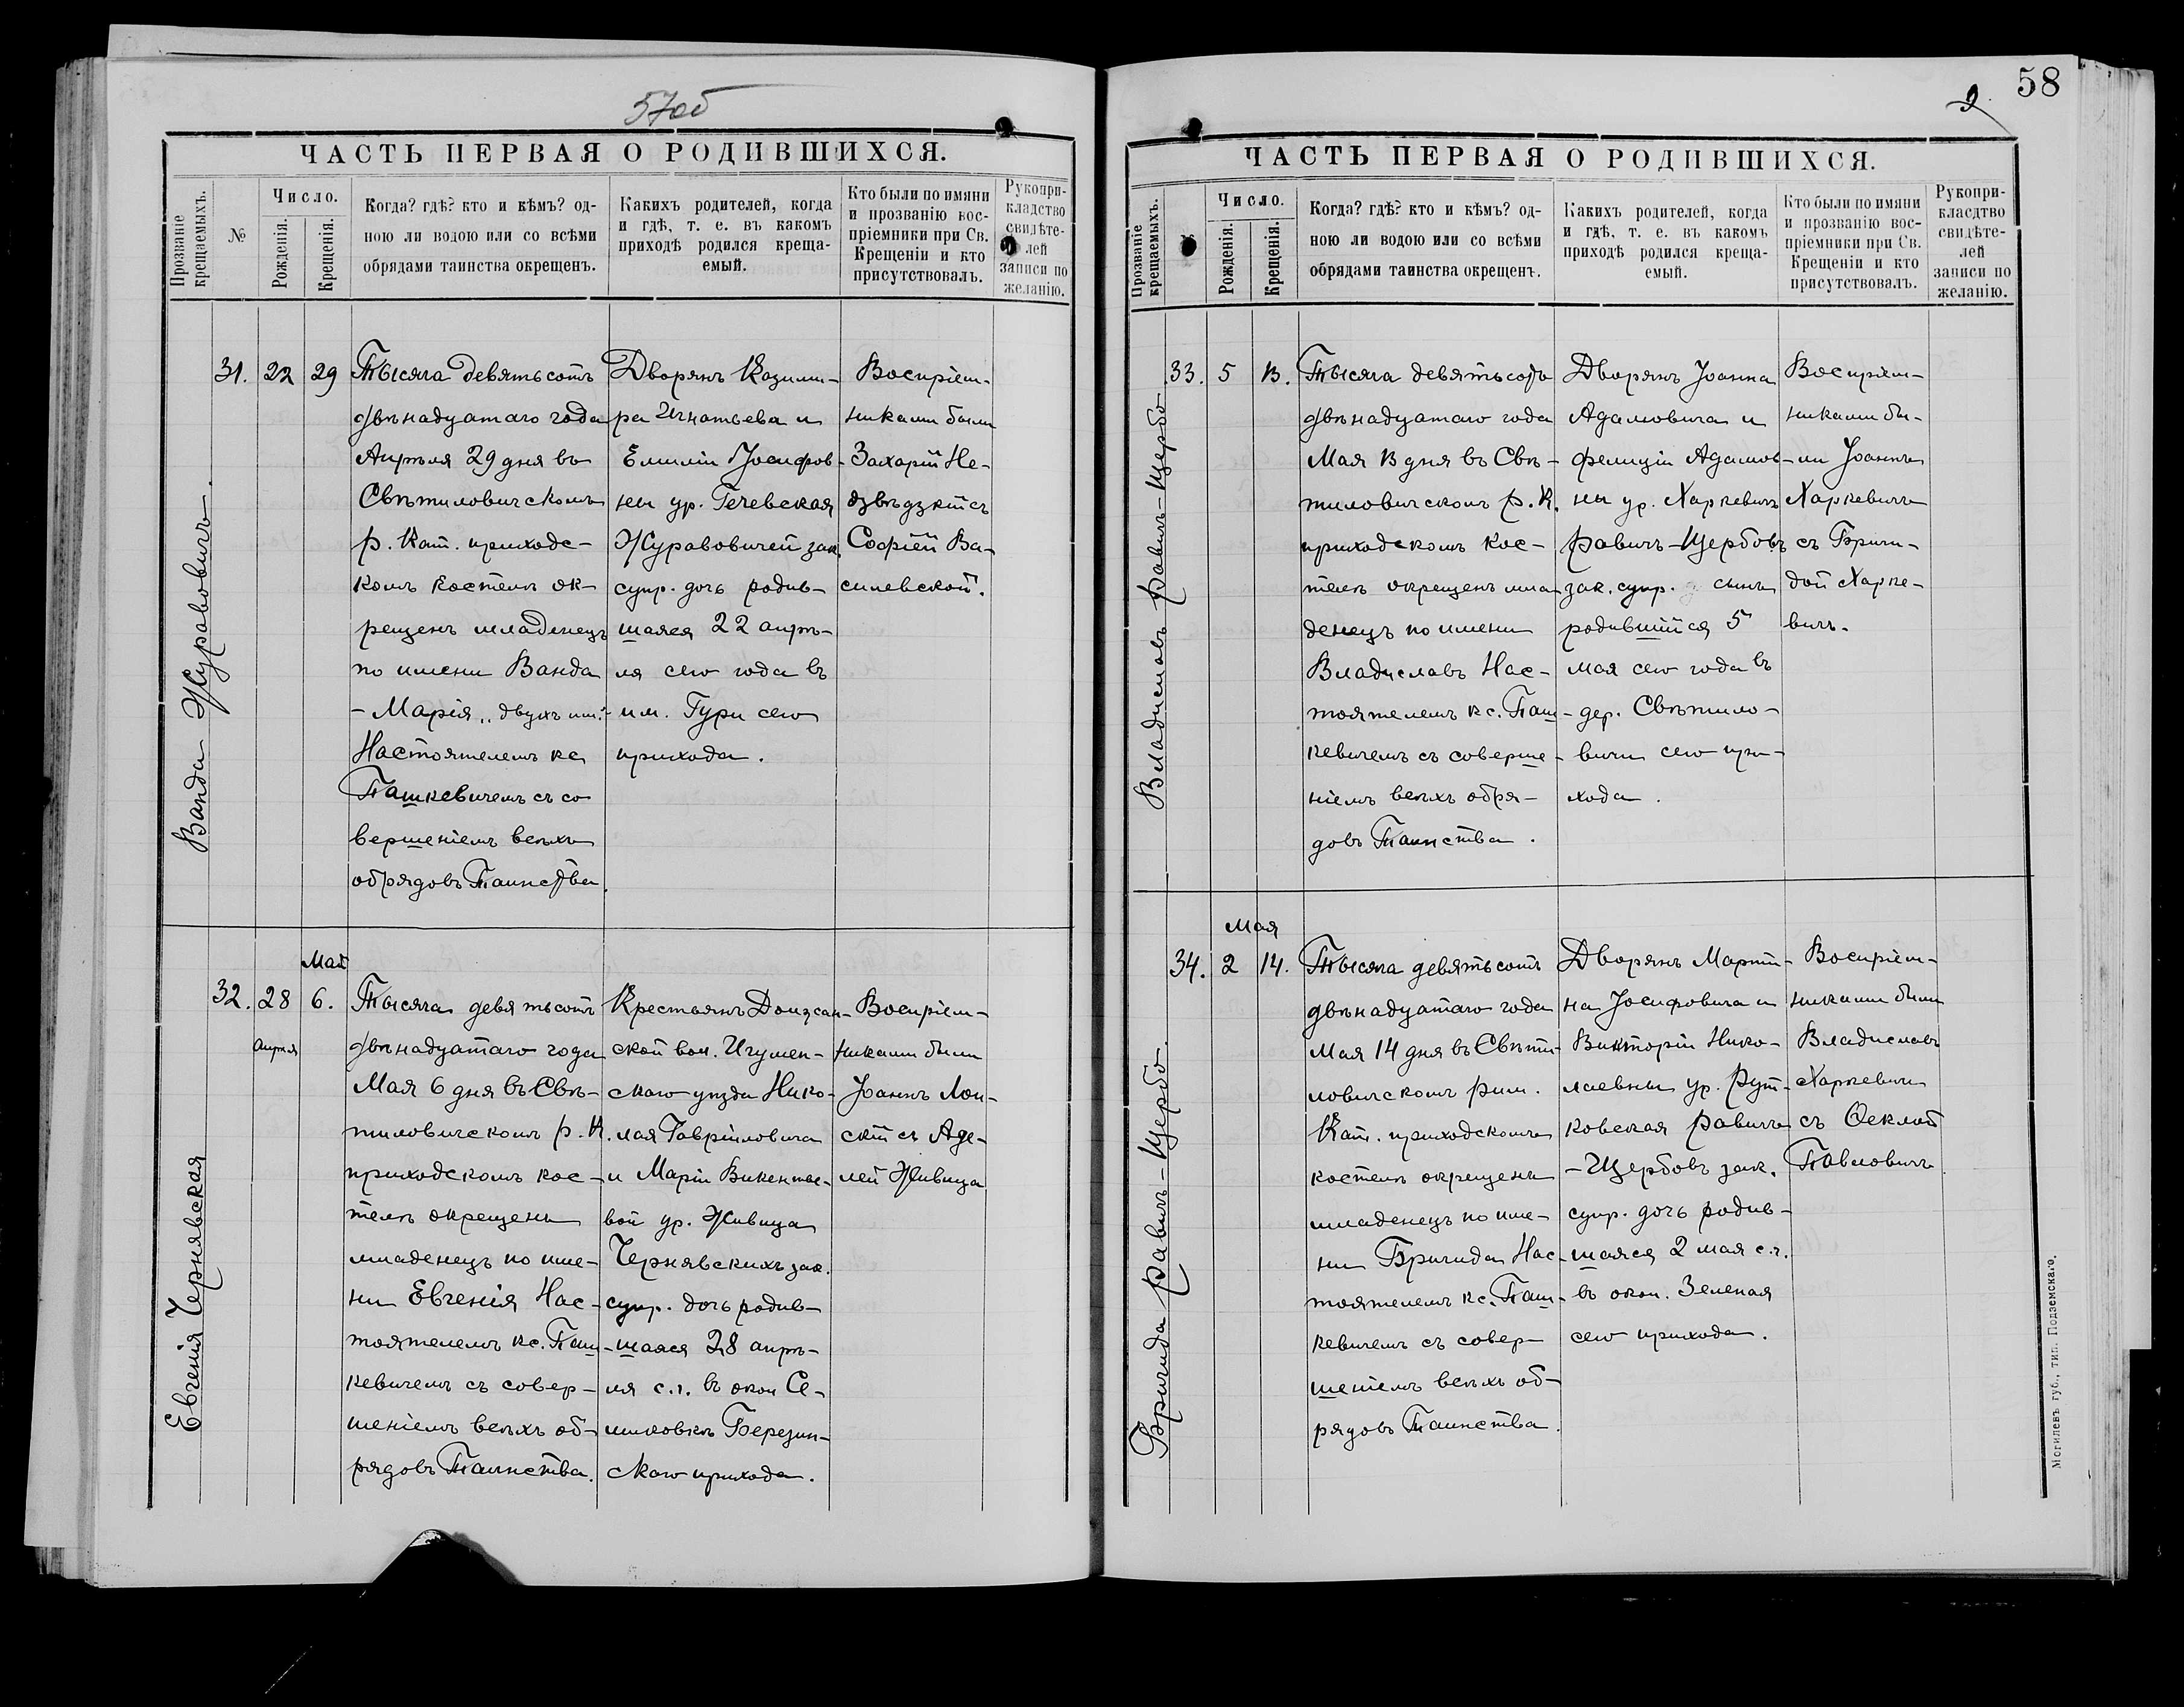 57об
ЧАСТЬ ПЕРВАЯ О РОДИВШИХСЯ.
Прозваніе крещаемыхъ.
№
Число.
Рожденія.
Крещенія.
Когда? гдѣ? кто и кѣмъ? од-
ною ли водою или со всѣми
обрядами таинства окрещенъ.
Какихъ родителей, когда
и гдѣ, т. е. въ какомъ
приходѣ родился креща-
емый.
Кто были по имяни
и прозванію вос-
пріемники при Св.
Крещеніи и кто
присутствовалъ.
Рукопри-
кладство
свидѣте-
лей
записи по
желанію.
Ванда Журавовичъ.
31. 22 29
Тысяча девятьсотъ
двѣнадцатаго года
Апрѣля 29 дня въ
Свѣтиловичскомъ
р. Кат. приходс-
комъ костелѣ ок-
рещенъ младенецъ
по имени Ванда
- Марія „ двухъ им.-
Настоятелемъ кс
Пашкевичемъ съ со
вершеніемъ всѣхъ
обрядовъ Таинства.
Дворянъ Казими-
ра Игнатьева и
Емиліи Іосифов-
ны ур. Гечевская
Журавовичей зак.
супр. дочь родив-
шаяся 22 апрѣ-
ля сего года въ
им. Гури сего
прихода.
Воспріем-
никами были
Захарій Не-
дзвѣдзкій съ
Софіей Ва-
силевской.
Евгенія Чернявская
32. 28 апрѣля
Мая 6.
Тысяча девятьсотъ
двѣнадцатаго года
Мая 6 дня въ Свѣ-
тиловичскомъ р. К.
приходскомъ кос-
телѣ окрещенъ
младенецъ по име-
ни Евгенія Нас-
тоятелемъ кс. Паш-
кевичемъ съ совер-
шеніемъ всѣхъ об-
рядовъ Таинства.
Крестьянъ
ской вол. Игумен-
скаго уѣзда Нико-
лая Гавріиловича
и Маріи Викентье-
вой ур. Живица
Чернявскихъ зак.
супр. дочь родив-
шаяся 28 апрѣ-
ля с.г. въ окол Се-
лиховкѣ Березин-
скаго прихода.
Воспріем-
никами были
Іоаннъ Лон-
скій съ Аде-
лей Живица
58
ЧАСТЬ ПЕРВАЯ О РОДИВШИХСЯ.
Прозваніе крещаемыхъ.
Число.
Рожденія.
Крещенія.
Когда? гдѣ? кто и кѣмъ? од-
ною ли водою или со всѣми
обрядами таинства окрещенъ.
Какихъ родителей, когда
и гдѣ, т. е. въ какомъ
приходѣ родился креща-
емый.
Кто были по имяни
и прозванію вос-
пріемники при Св.
Крещеніи и кто
присутствовалъ.
Рукопри-
класдтво
свидѣте-
лей
записи по
желанію.
Владиславъ Равичъ-Щербо
33. 5 13.
Тысяча девятьсотъ
двѣнадцатаго года
Мая 13 дня въ Свѣ-
тиловичскомъ р. К.
приходскомъ кос-
телѣ окрещенъ мла-
денецъ по имени
Владиславъ Нас-
тоятелемъ кс. Паш-
кевичемъ съ соверше-
ніемъ всѣхъ обря-
довъ Таинства.
Дворянъ Іоанна
Адамовича и
Фелиціи Адамов-
ны ур. Харкевичъ
Равичъ-Щербовъ
зак. супр. сынъ
родившійся 5
мая сего года въ
дер. Свѣтило-
вичи сего при-
хода.
Воспріем-
никами бы-
ли Іоаннъ
Харкевичъ
съ Бриги-
дой Харке-
вичъ.
Бригида Равичъ-Щербо.
Мая
34. 2 14.
Тысяча девятьсотъ
двѣнадцатаго года
Мая 14 дня въ Свѣти-
ловичскомъ рим.
Кат. приходскомъ
костелѣ окрещенъ
младенецъ по име-
ни Бригида Нас-
тоятелемъ кс. Паш-
кевичемъ съ совер-
шеніемъ всѣхъ об-
рядовъ Таинства.
Дворянъ Марти-
на Іосифовича и
Викторіи Нико-
лаевны ур. Рут-
ковская Равичъ
-Щербовъ зак.
супр. дочь родив-
шаяся 2 мая с.г.
въ окол. Зеленая
сего прихода.
Воспріем-
никами были
Владиславъ
Харкевичъ
съ Ѳеклой
Павловичъ
Могилевъ губ., тип. Подземскаго.